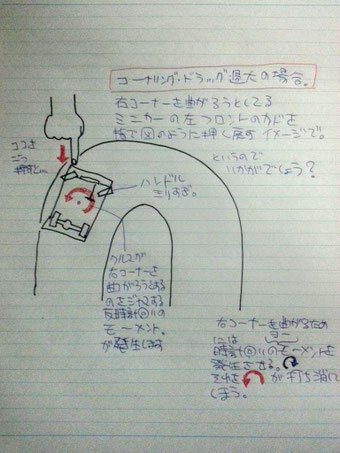 コーナリング・ドラッグ過大の場合。
右コーナーを曲がろうとしてる
ミニカーの左フロントのカドを
指で図のように押し戻すイメージで。
というので
いかがでしょう?
ココを
こう
押すと…
ハンドル
きりすぎ。
クルマが
右コーナーを
曲がろうとする
のをジャマする
反時計回りの
モーメント。
が発生します
右コーナーを曲がるため
には ヨー
時計回りのモーメントを
発生させる。
それを が打ち消して
しまう。